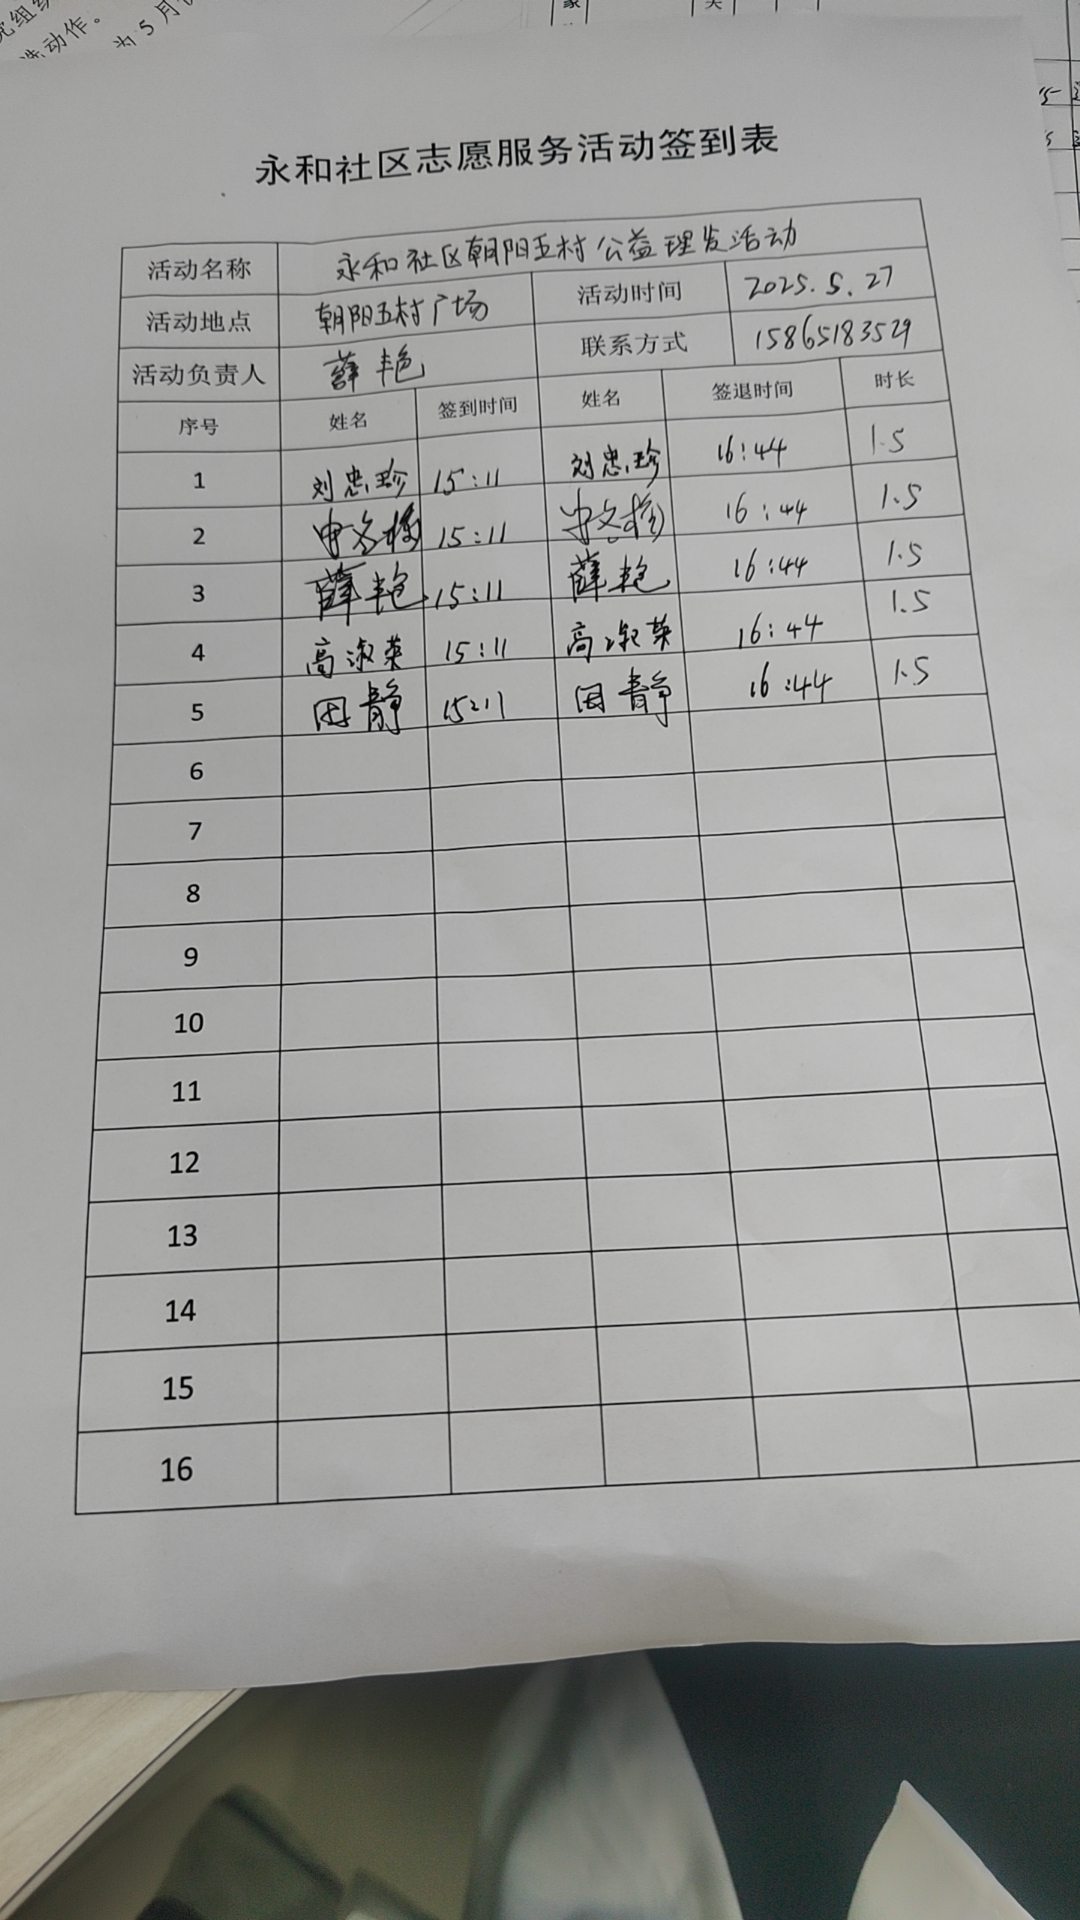 党组织
选动作。
为5月份
家
永和社区志愿服务活动签到表
活动名称 永和社区朝阳五村公益理发活动
活动地点 朝阳五村广场 活动时间 2025.5.27
活动负责人 薛艳 联系方式 15865183529
序号 姓名 签到时间 姓名 签退时间 时长
1 刘忠珍 15:11 刘忠珍 16:44 1.5
2 15:11 16:44 1.5
3 薛艳 15:11 薛艳 16:44 1.5
4 高淑荣 15:11 高淑荣 16:44 1.5
5 田静 15:11 田静 16:44 1.5
6
7
8
9
10
11
12
13
14
15
16